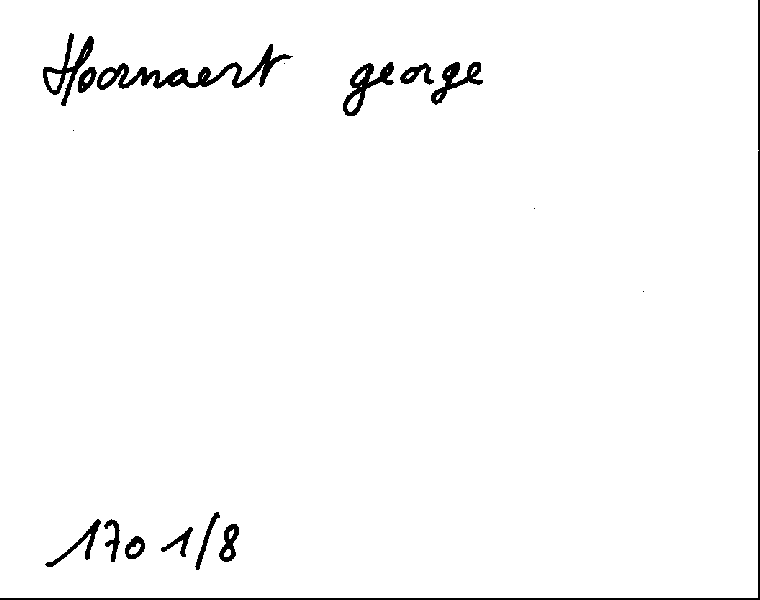 Hoornaert george
170 1/8